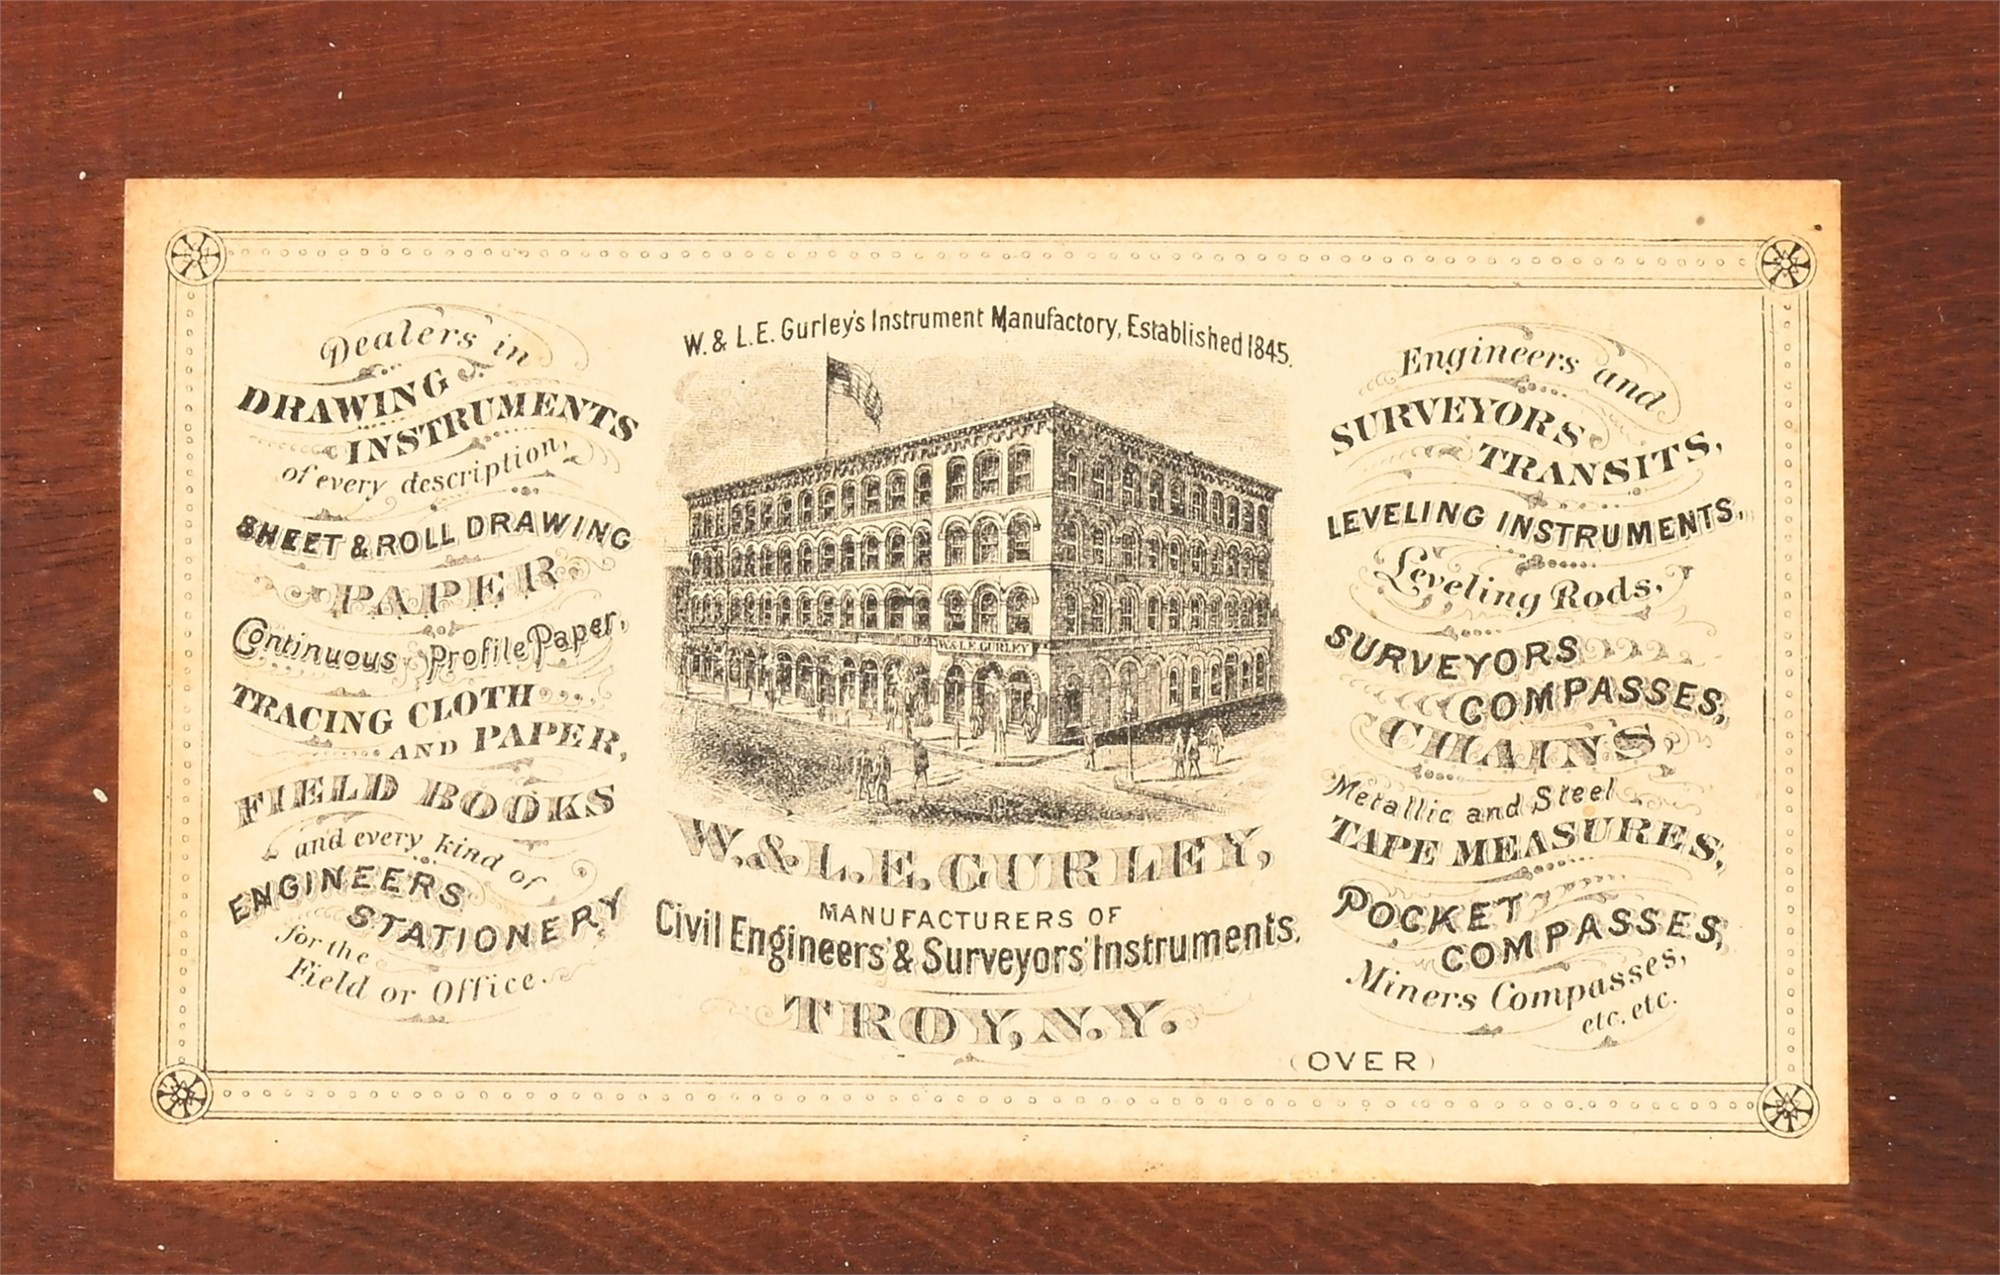 Dealers in
DRAWING
INSTRUMENTS
of every description,
SHEET & ROLL DRAWING
PAPER
Continuous Profile Paper,
TRACING CLOTH
AND PAPER,
FIELD BOOKS
and every kind of
ENGINEERS
STATIONERY
for the
Field or Office.
W. & L.E. Gurley's Instrument Manufactory, Established 1845.
W. & L.E. GURLEY
W. & L.E. GURLEY,
MANUFACTURERS OF
Civil Engineers' & Surveyors' Instruments.
TROY, N.Y.
Engineers and
SURVEYORS
TRANSITS,
LEVELING INSTRUMENTS,
Leveling Rods,
SURVEYORS
COMPASSES,
CHAINS
Metallic and Steel
TAPE MEASURES,
POCKET
COMPASSES,
Miners Compasses,
etc. etc.
(OVER)